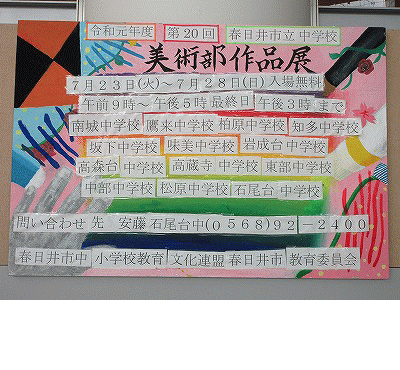 令和元年度 第20回 春日井市立中学校
美術部作品展
7月23日(火)〜7月28日(日)入場無料
午前9時〜午後5時最終日午後3時まで
南城中学校 鷹来中学校 柏原中学校 知多中学校
坂下中学校 味美中学校 岩成台中学校
高森台中学校 高蔵寺中学校 東部中学校
中部中学校 松原中学校 石尾台中学校
問い合わせ先 安藤 石尾台中(0568)92-2400
春日井市中 小学校教育 文化連盟 春日井市 教育委員会